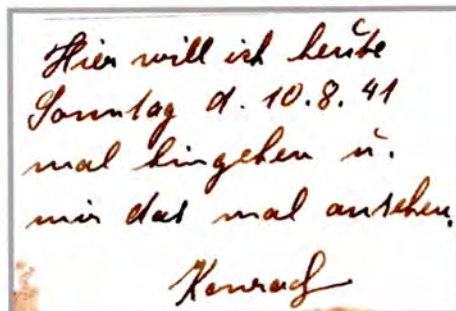 Hier will ich heute
Sonntag d. 10.8.41
mal hingehen u.
mir das mal ansehen.
Konrad